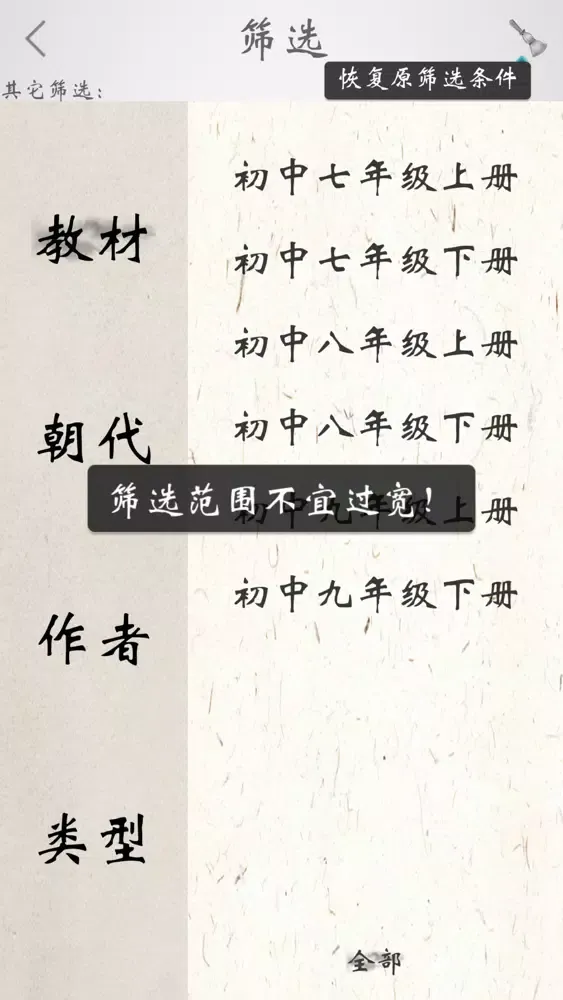 筛选
恢复原筛选条件
其它筛选：
教材
朝代
作者
类型
初中七年级上册
初中七年级下册
初中八年级上册
初中八年级下册
初中九年级上册
初中九年级下册
全部
筛选范围不宜过宽！